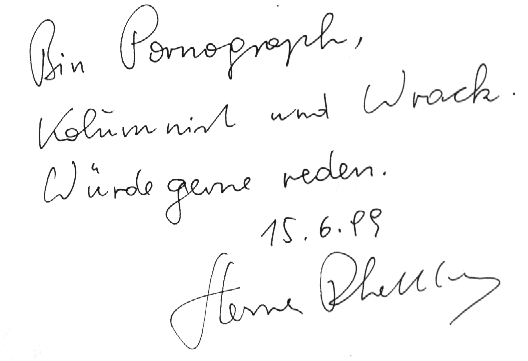 Bin Pornograph,
Kolumnist und Wrack.
Würde gerne reden.
15.6.99